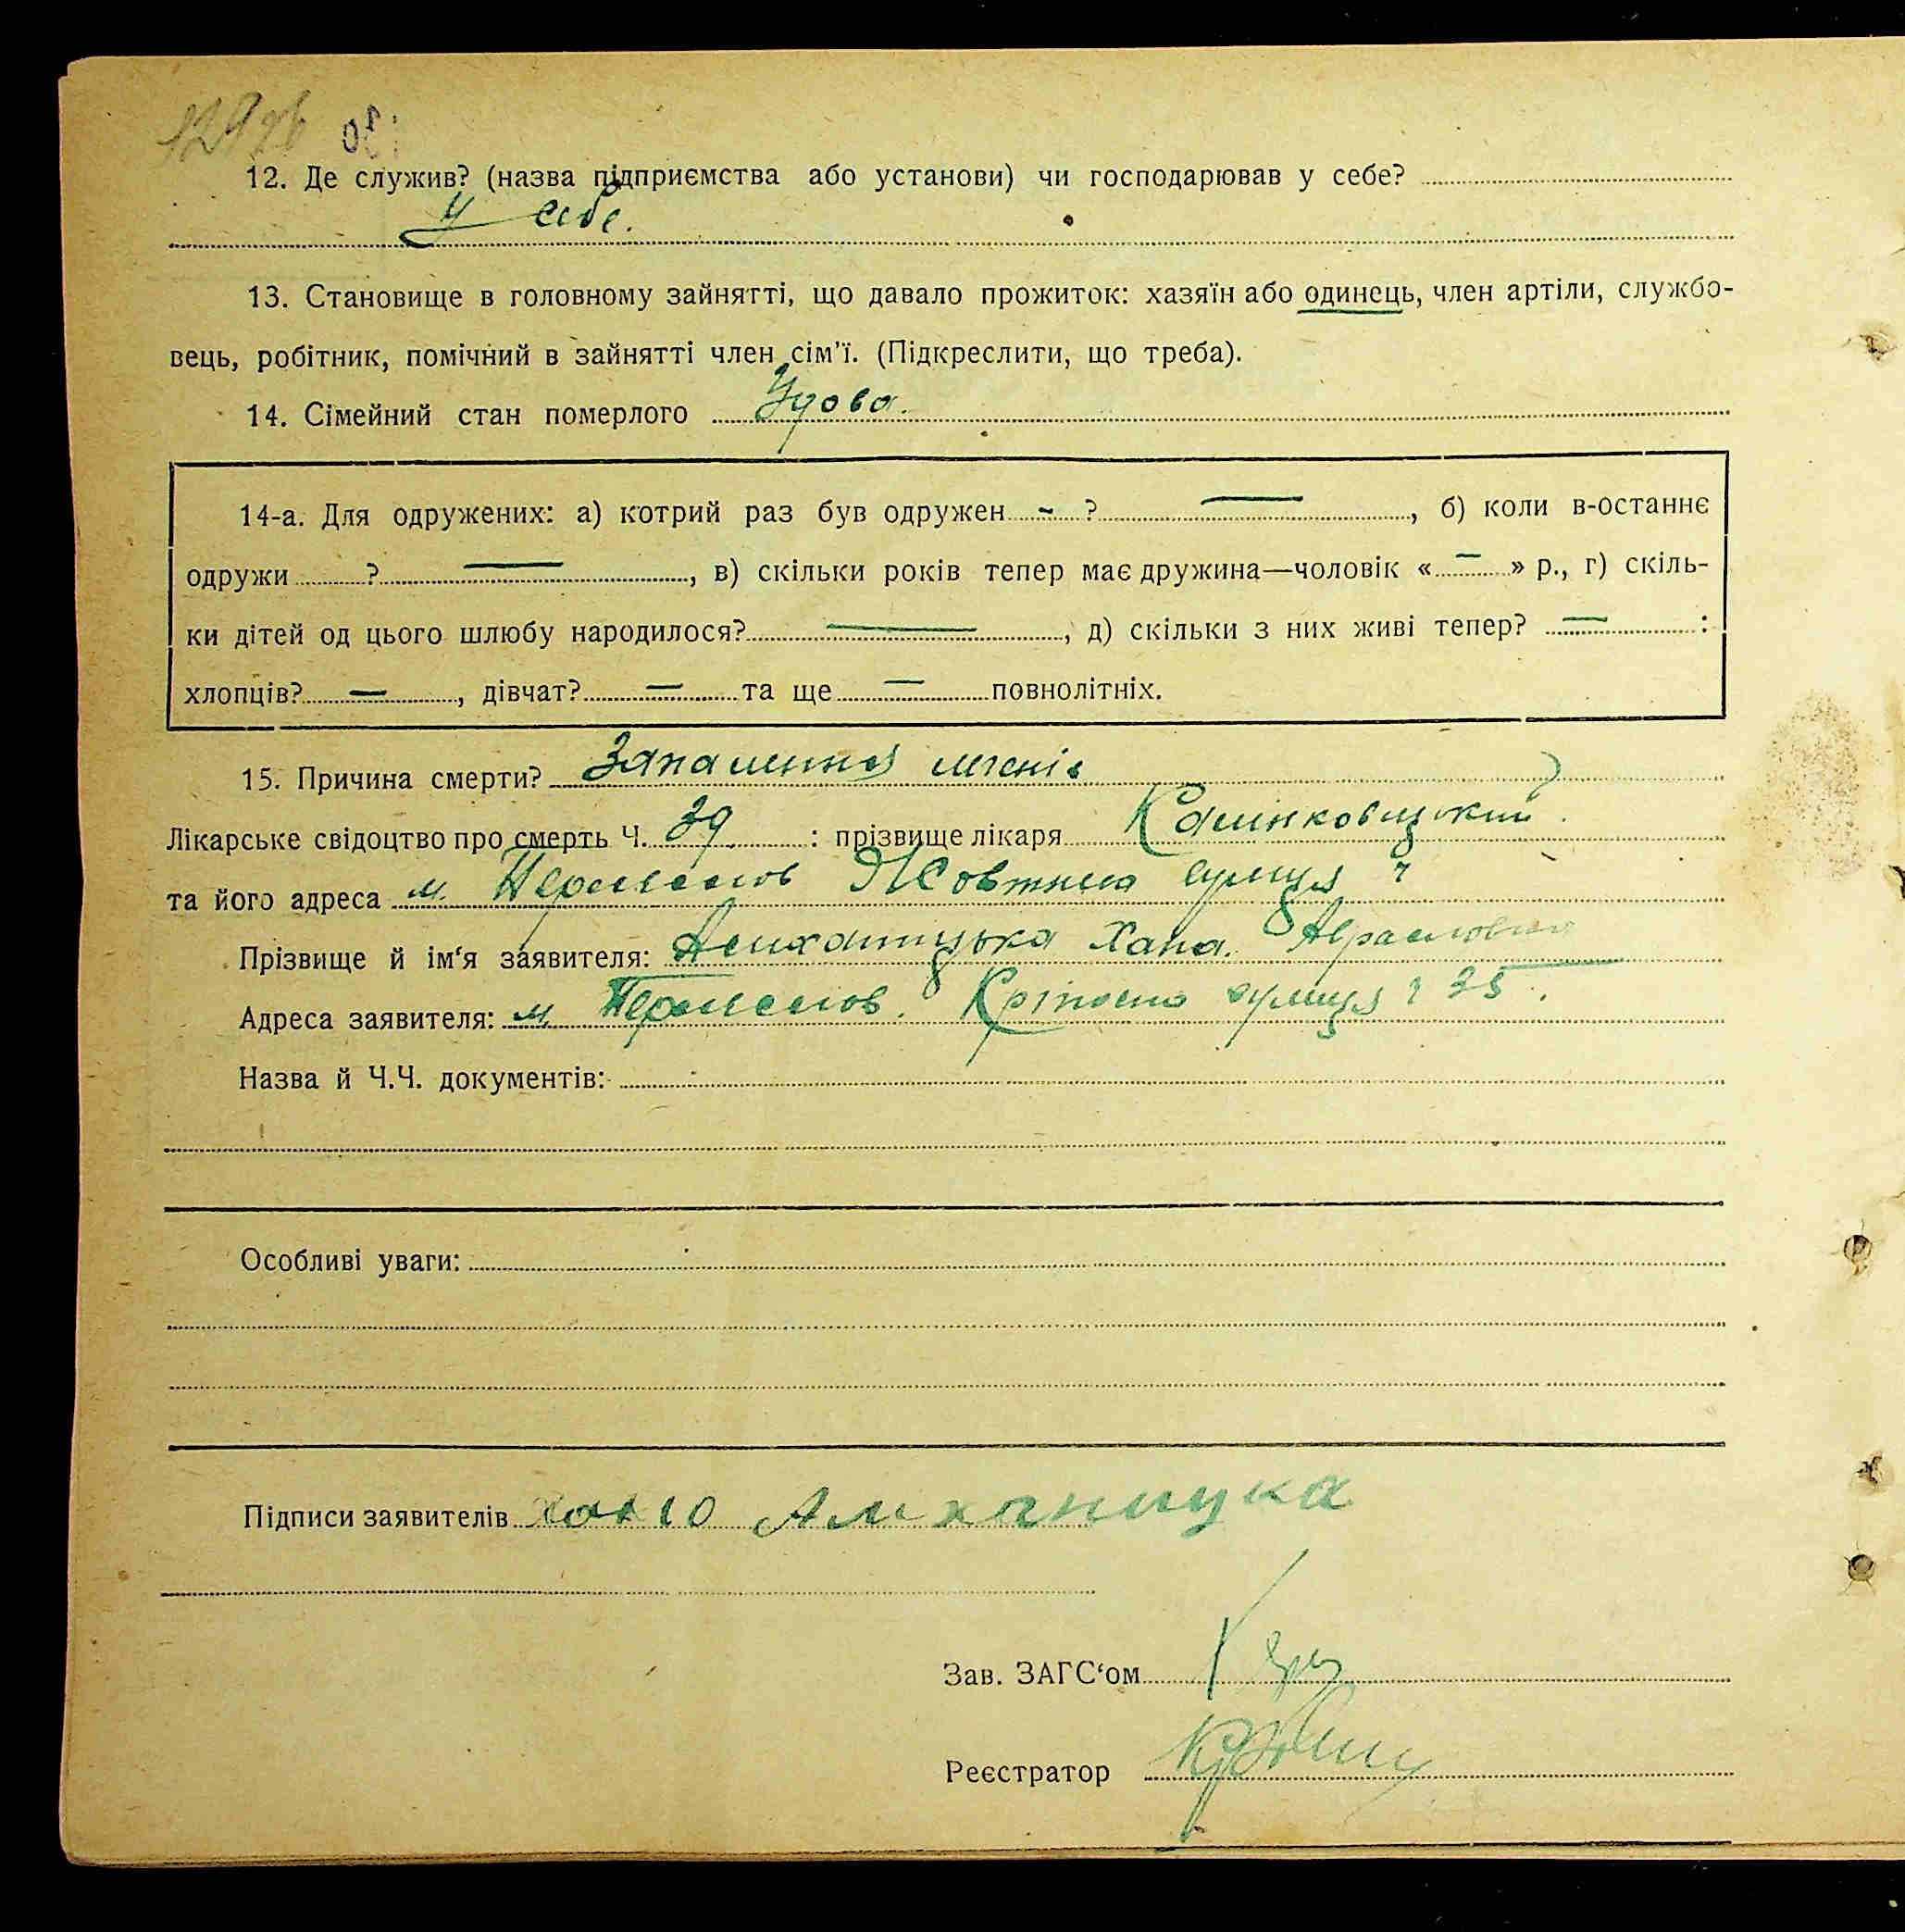 12. Де служив? (назва підприємства або установи) чи господарював у себе?
у себе.
13. Становище в головному зайнятті, що давало прожиток: хазяїн або одинець, член артіли, службо-
вець, робітник, помічний в зайнятті член сім’ї. (Підкреслити, що треба).
14. Сімейний стан померлого Удова.
14-а. Для одружених: а) котрий раз був одружен - ? —, б) коли в-останнє
одружи ? —, в) скільки років тепер має дружина—чоловік « — » р., г) скіль-
ки дітей од цього шлюбу народилося? —, д) скільки з них живі тепер? — :
хлопців? —, дівчат? — та ще — повнолітніх.
15. Причина смерти? Запалення легенів
Лікарське свідоцтво про смерть Ч. 39 : прізвище лікаря
та його адреса м. Переяслов Жовтнева вулиця ч
Прізвище й ім‘я заявителя: Хана. Абрамовна
Адреса заявителя: м. Переяслов. вулиця ч 35.
Назва й Ч.Ч. документів:
Особливі уваги:
Підписи заявителів
Зав. ЗАГС‘ом
Реєстратор